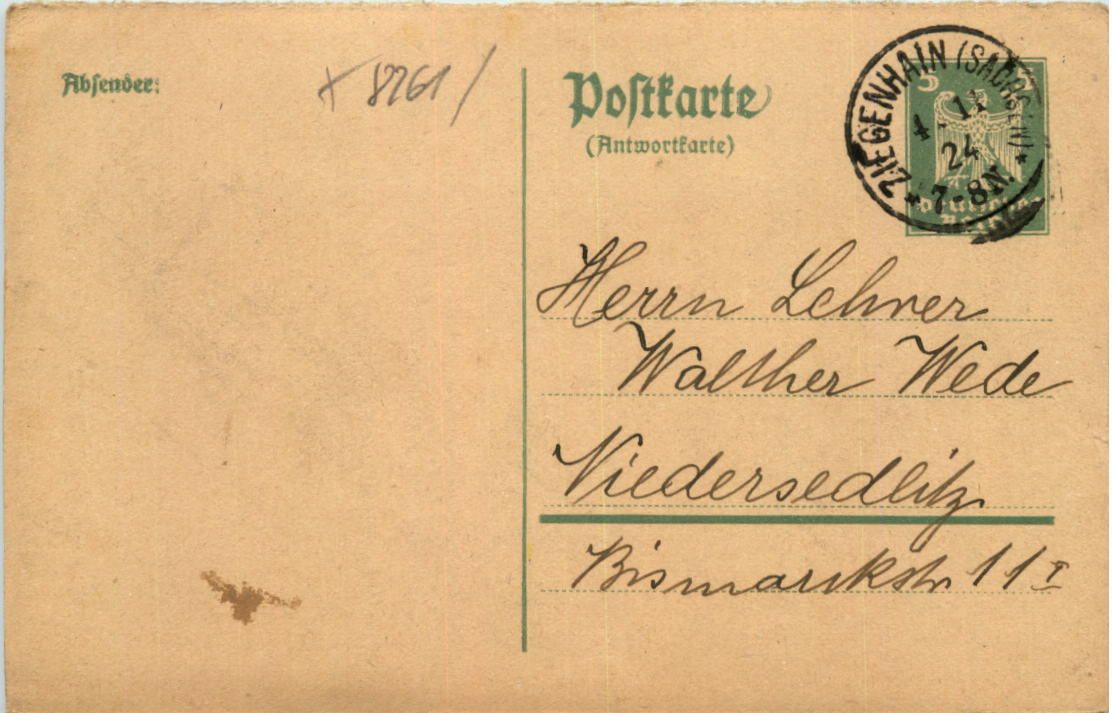 Absender:
x 8261 /
Postkarte
(Antwortkarte)
5
ZIEGENHAIN (SACHSEN)
4. 11
24
* 7-8N. *
Deutsches
Reich
Herrn Lehrer
Walther Wede
Niedersedlitz
Bismarckstr 11 I